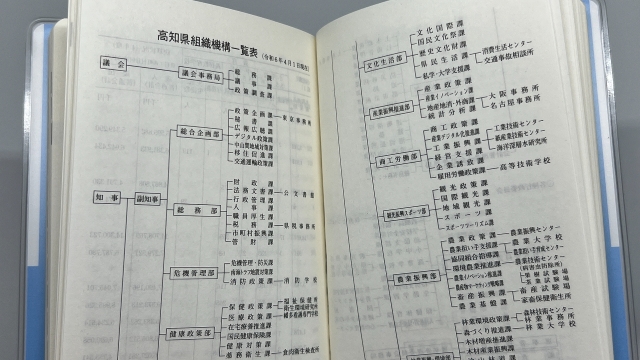 高知県組織機構一覧表（令和6年4月1日現在）
議会
議会事務局
総務課
議事課
政策調査課
知事
副知事
総合企画部
政策企画課
東京事務所
秘書課
広報広聴課
デジタル政策課
中山間地域対策課
移住促進課
交通運輸政策課
総務部
財政課
法務文書課
公文書館
行政管理課
人事課
職員厚生課
税務課
県税事務所
市町村振興課
管財課
危機管理部
危機管理・防災課
南海トラフ地震対策課
消防政策課
消防学校
健康政策部
保健政策課
福祉保健所
衛生環境研究所
幡多看護専門学校
医療政策課
在宅療養推進課
国民健康保険課
健康対策課
薬務衛生課
食肉衛生検査所
文化生活部
文化国際課
国民文化祭課
歴史文化財課
県民生活課
消費生活センター
交通事故相談所
私学・大学支援課
産業振興推進部
産業政策課
産業イノベーション課
地産地消・外商課
大阪事務所
名古屋事務所
統計分析課
商工労働部
商工政策課
産業デジタル化推進課
工業振興課
工業技術センター
紙産業技術センター
海洋深層水研究所
経営支援課
企業誘致課
雇用労働政策課
高等技術学校
観光振興スポーツ部
観光政策課
国際観光課
地域観光課
スポーツ課
スポーツツーリズム課
農業振興部
農業政策課
農業振興センター
農業担い手支援課
農業大学校
農業担い手育成センター
協同組合指導課
環境農業推進課
農業技術センター
（病害虫防除所）
果樹試験場
茶業試験場
農業イノベーション推進課
農産物マーケティング戦略課
畜産振興課
畜産試験場
家畜保健衛生所
農業基盤課
林業環境政策課
森林技術センター
森づくり推進課
林業事務所
林業大学校
木材増産推進課
木材産業振興課